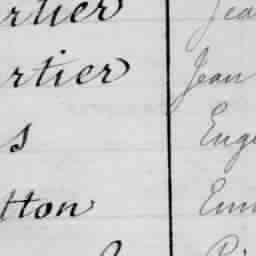 rtier Jea
rtier Jean
s Euge
tton Em